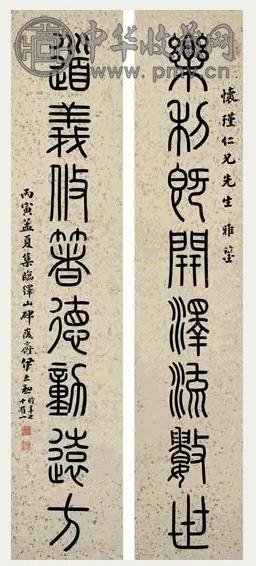 中华收藏网
www.pmv.cn
懷瑾仁兄先生 雅鑒
樂利既開澤流數世
道義攸箸德動遠方
丙寅孟夏集臨繹山碑 時年七十有一